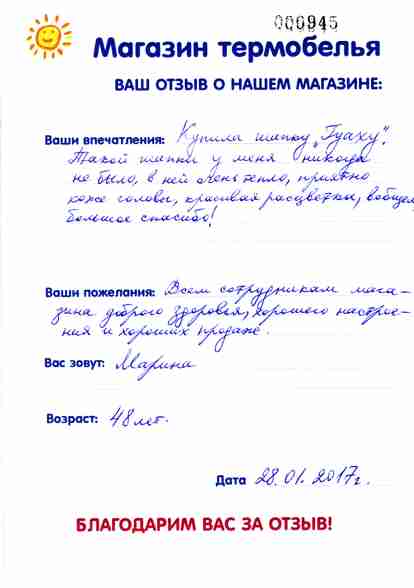 000945
Магазин термобелья
ВАШ ОТЗЫВ О НАШЕМ МАГАЗИНЕ:
Ваши впечатления: Купила шапку „Гуаху".
Такой шапки у меня никогда
не было, в ней очень тепло, приятно
коже головы, красивая расцветка, вобщем
большое спасибо!
Ваши пожелания: Всем сотрудникам мага-
зина доброго здоровья, хорошего настрое-
ния и хороших продаж.
Вас зовут: Марина
Возраст: 48 лет.
Дата 28.01.2017г.
БЛАГОДАРИМ ВАС ЗА ОТЗЫВ!